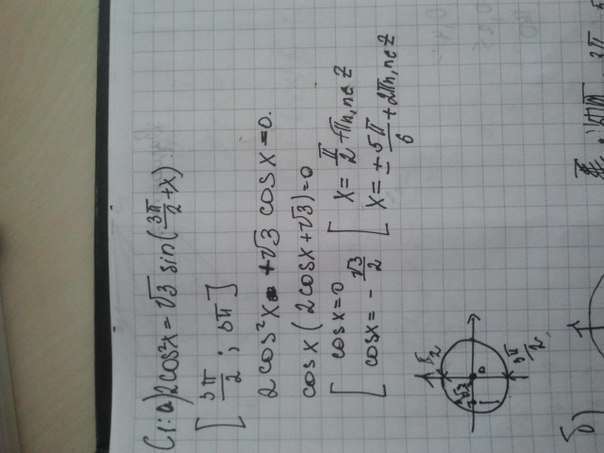 C1: а) 2cos²x = √3 sin(3π/2 + x)
[5π/2; 5π]
2cos²x + √3 cosx = 0.
cosx (2cosx + √3) = 0
[ cosx = 0 [ x = π/2 + πn, n∈Z
cosx = -√3/2 x = ± 5π/6 + 2πn, n∈Z
π/2
0
б)